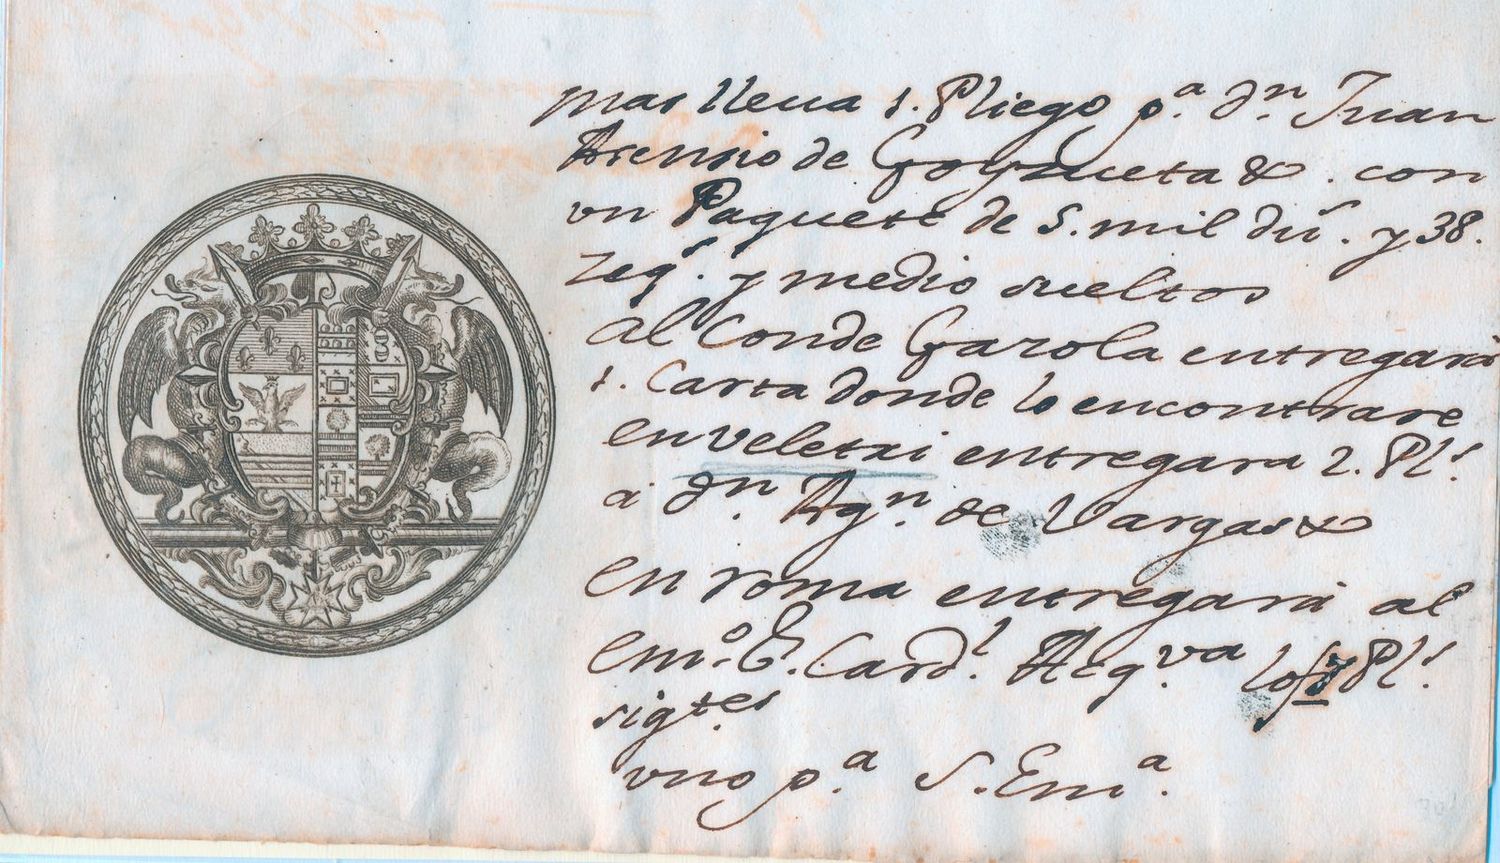 mas lleua 1. Pliego p.ª Dn. Juan
Asensio de Goyzueta & . con
vn Paquete de 5. mil dũ. y 38.
zeq.s y medio sueltos
al Conde Gazola entregarà
1. Carta donde lo encontrare
en veletri entregara 2. Pl.s
a Dn. Agn. de Vargas &
en roma entregarà al
em.o S.r Card.l Acq.va los 7 Pl.s
sigtes
vno p.ª S. Em.ª